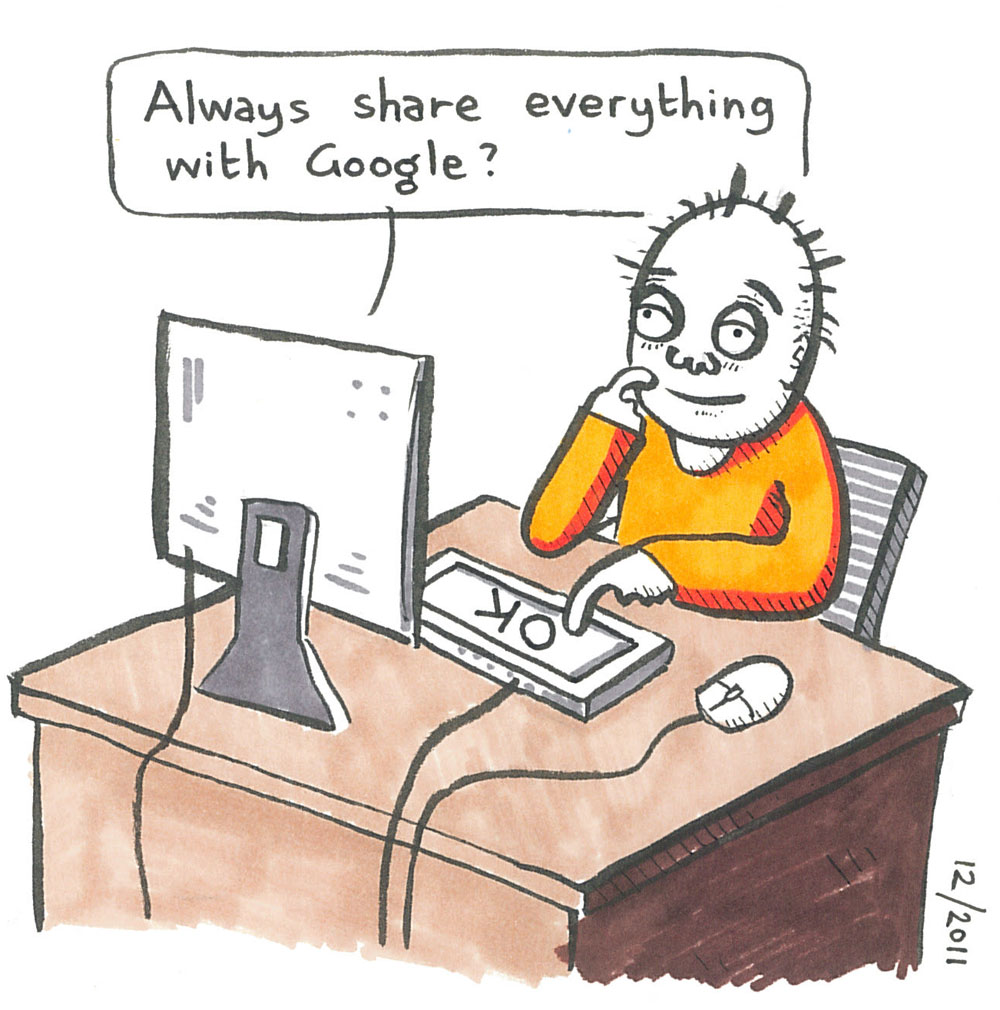 Always share everything
with Google?
OK
12/2011